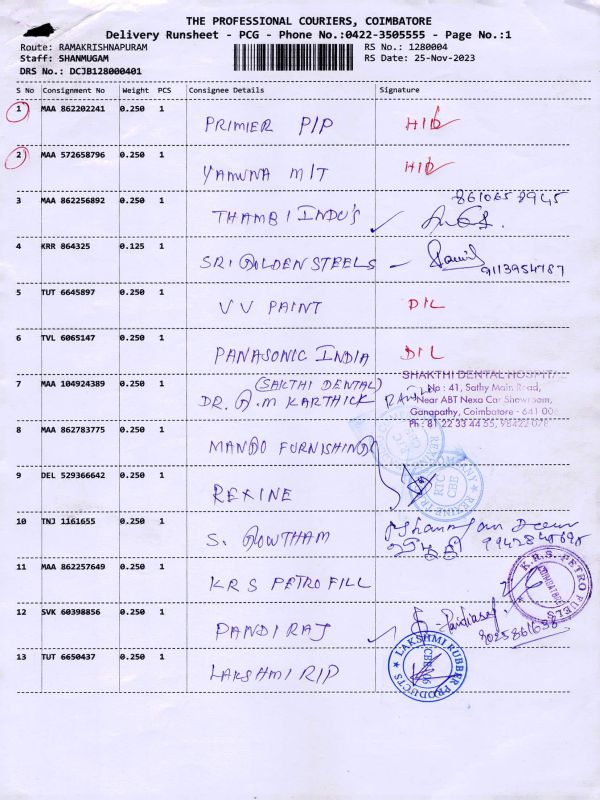 THE PROFESSIONAL COURIERS, COIMBATORE
Delivery Runsheet - PCG - Phone No.:0422-3505555 - Page No.:1
Route: RAMAKRISHNAPURAM RS No.: 1280004
Staff: SHANMUGAM RS Date: 25-Nov-2023
DRS No.: DCJB128000401
S No Consignment No Weight PCS Consignee Details Signature
1 MAA 862202241 0.250 1
PRIMIER P/P
2 MAA 572658796 0.250 1
YAMUNA M/T
3 MAA 862256892 0.250 1
THAMBI INDU'S
4 KRR 864325 0.125 1
SRI GOLDEN STEELS 9113954187
5 TUT 6645897 0.250 1
VV PAINT D/L
6 TVL 6065147 0.250 1
PANASONIC INDIA D/L
SHAKTHI DENTAL HOSPITAL
7 MAA 104924389 0.250 1 (SAKTHI DENTAL) No : 41, Sathy Main Road,
DR. G.M KARTHICK Near ABT Nexa Car Showroom,
Ganapathy, Coimbatore - 641 00
8 MAA 862783775 0.250 1 Ph : 81 22 33 44 55,
MANDO FURNISHING
9 DEL 529366642 0.250 1
REXINE
RTC
CBE
10 TNJ 1161655 0.250 1
S. GOWTHAM
11 MAA 862257649 0.250 1 K.R.S. PETRO FUELS
KRS PETRO FILL
12 SVK 60398856 0.250 1
PANDIRAJ
13 TUT 6650437 0.250 1 LAKSHMI RUBBER PRODUCTS
LAKSHMI RIP